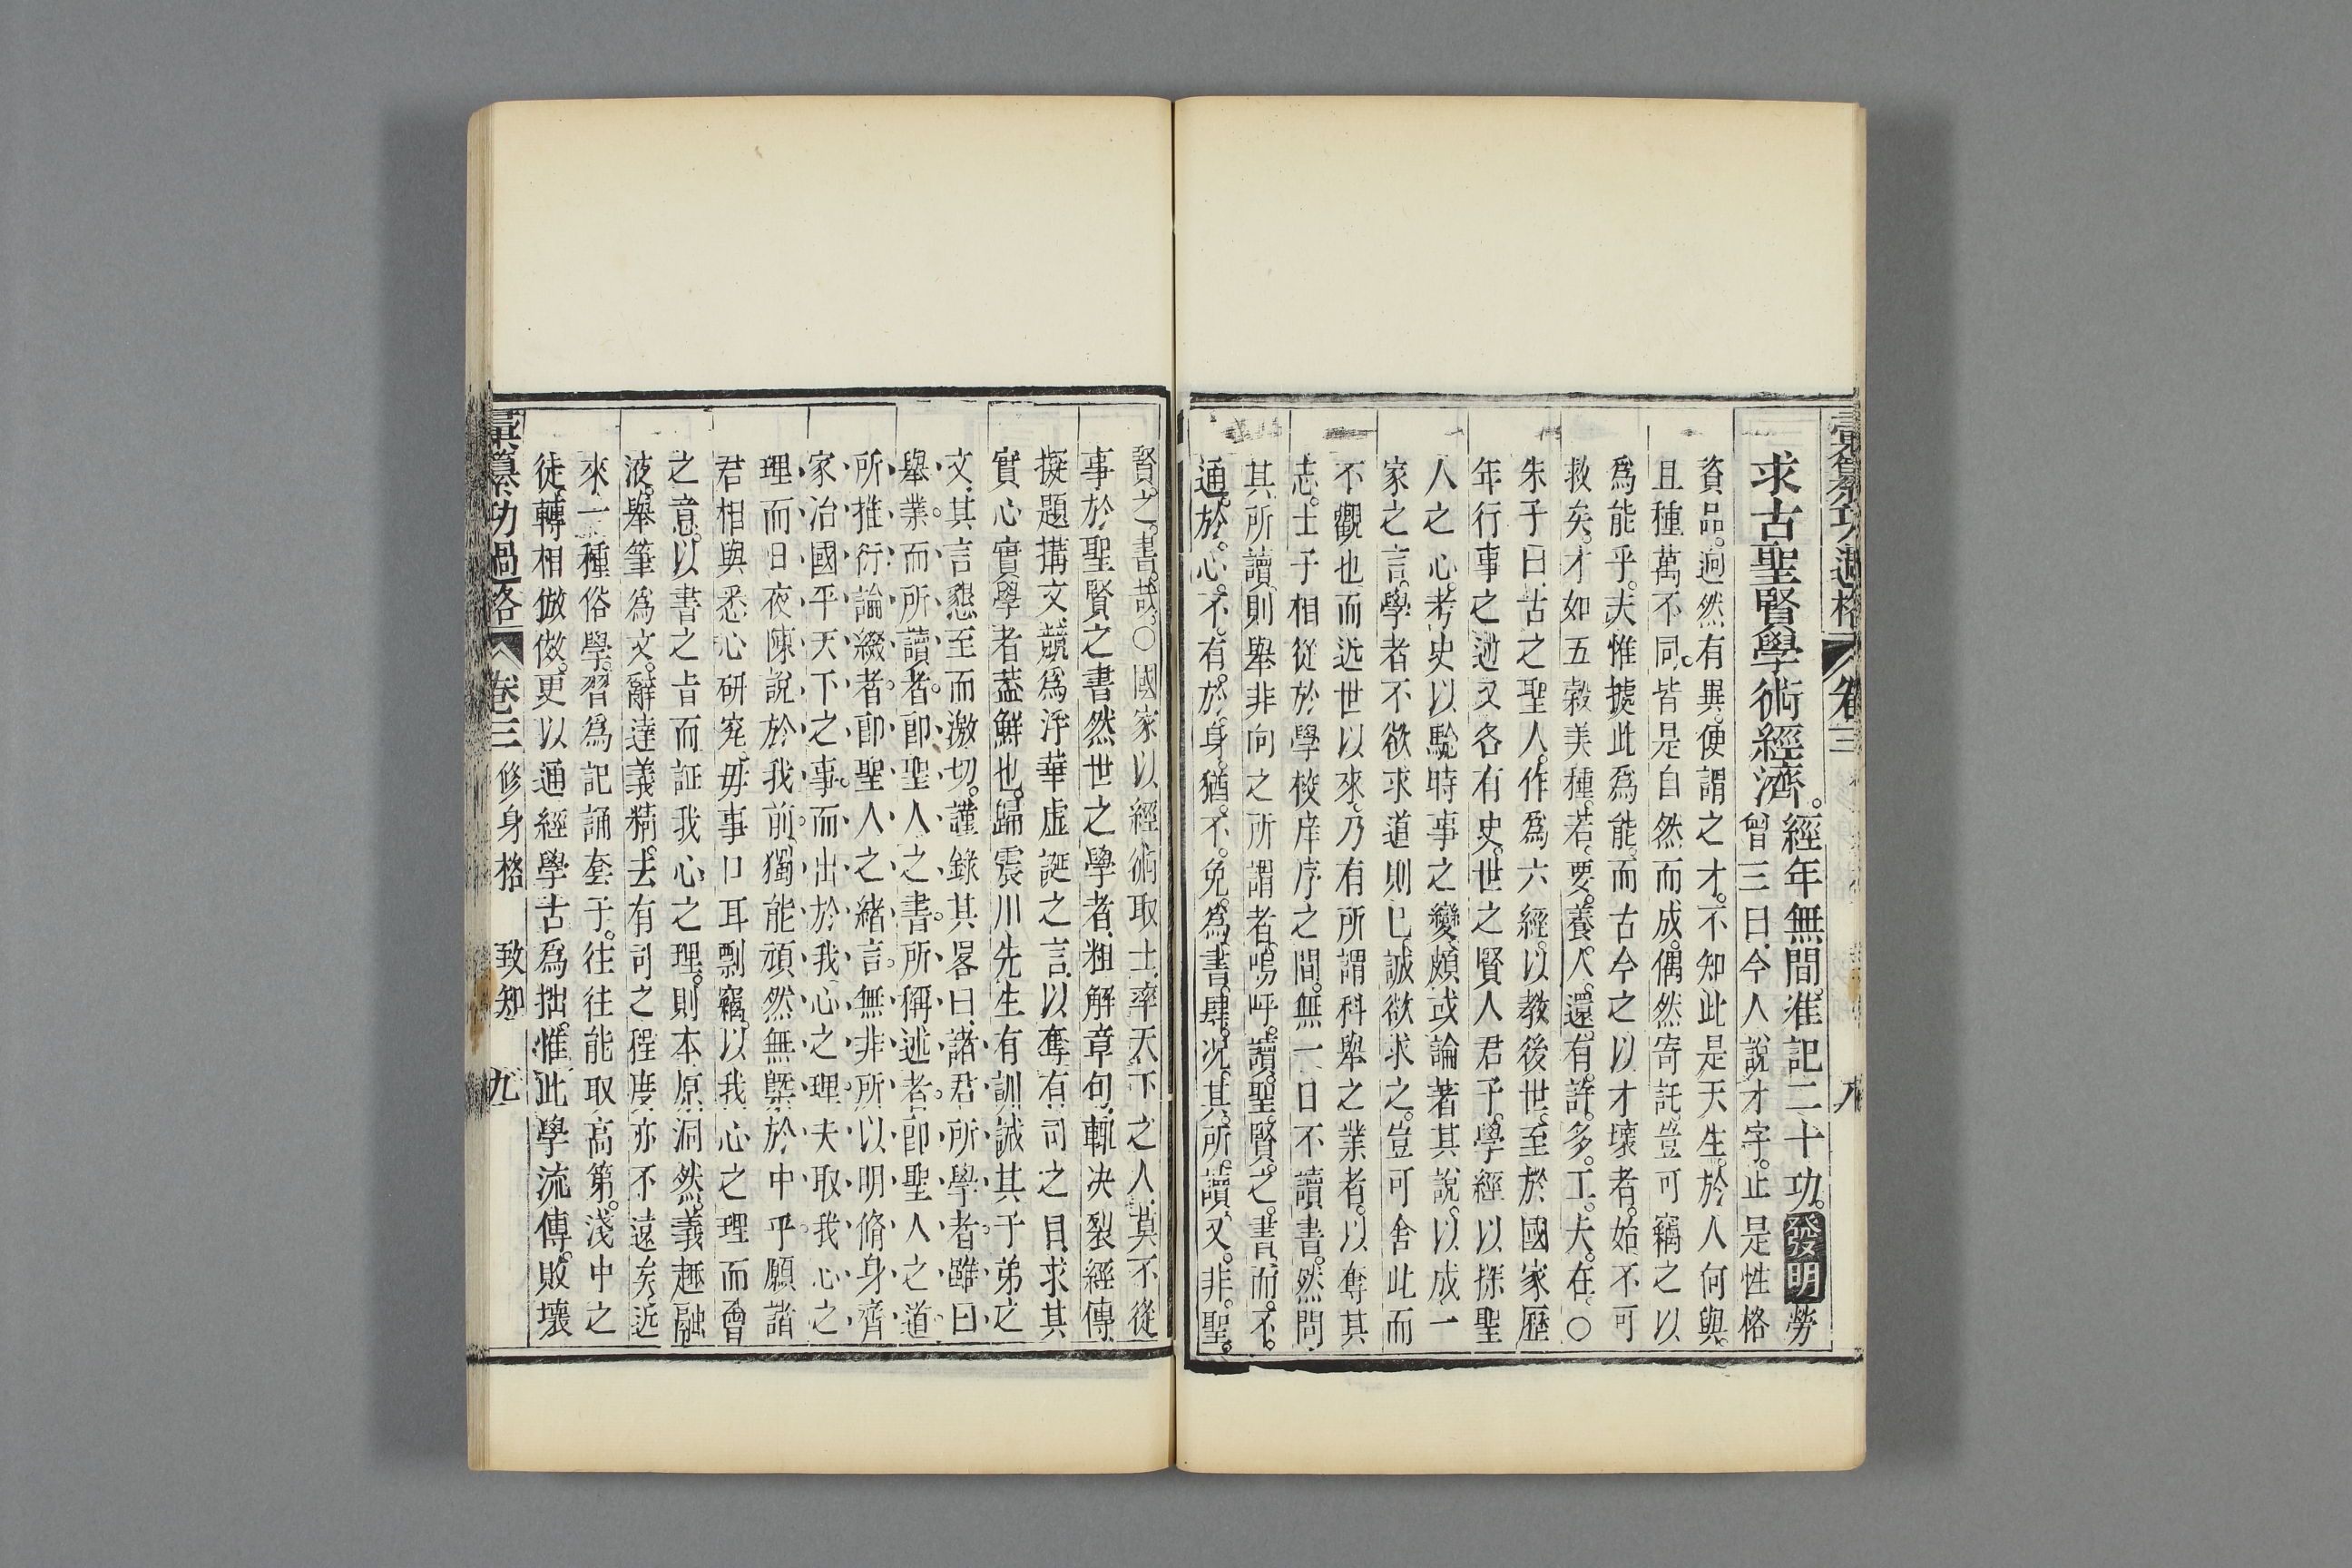 彙纂功過格 卷三 八
求古聖賢學術經濟。經年無間。准記二十功。發明勞
曾三曰、今人說才字。止是性格
資品。逈然有異。便謂之才。不知此是天生。於人何與。
且種萬不同。皆是自然而成。偶然寄託。豈可竊之以
爲能乎。夫惟據此爲能。而古今之以才壞者。始不可
救矣。才如五榖美種。若。要。養。人。還。有。許。多。工。夫。在。○
朱子曰、古之聖人。作爲六經。以教後世。至於國家歷
年行事之迹。又各有史。世之賢人君子。學經以探聖
人之心。考史以驗時事之變。頗或論著其說。以成一
家之言。學者不欲求道則已。誠欲求之。豈可舍此而
不觀也而近世以來。乃有所謂科舉之業者。以奪其
志。士子相從於學校庠序之間。無一日不讀書。然問
其所讀。則舉非向之所謂者。嗚呼。讀。聖。賢。之。書。而。不。
通。於。心。不。有。於。身。猶。不。免。爲。書。肆。况。其。所。讀。又。非。聖。
賢。之。書。哉。○國家以經術取士、率天下之人、莫不從
事於聖賢之書然世之學者、粗解章句、輒决裂經傳、
擬題搆文、競爲浮華虛誕之言、以奪有司之目、求其
實心實學者蓋鮮也。歸震川先生有訓誡其子弟之
文、其言懇至而激切。謹錄其畧曰、諸君所學者。雖曰
舉業。而所讀者。卽聖人之書。所稱述者。卽聖人之道。
所推衍論綴者。卽聖人之緒言。無非所以明脩身齊
家治國平天下之事。而出於我心之理。夫取我心之
理而日夜陳說於我前。獨能頑然無槩於中乎。願諸
君相與悉心研究。毋事口耳剽竊。以我心之理而會
之意。以書之旨而証我心之理。則本原洞然。義趣融
液。舉筆爲文。辭達義精。去有司之程度亦不遠矣。近
來一種俗學。習爲記誦套子。往往能取高第。淺中之
徒、轉相倣傚。更以通經學古爲拙。惟此學流傳。敗壞
彙纂功過格 卷三 修身格 致知 九